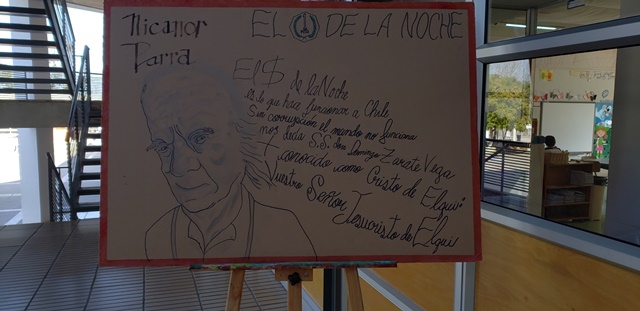 Nicanor
Parra
EL DE LA NOCHE
El $ de la Noche
es lo que hace funcionar a Chile
Sin corrupción el mundo no funciona
nos decía S.S. don Domingo Zarate Vega
+ conocido como Cristo de Elqui:
Nuestro Señor Jesucristo de Elqui